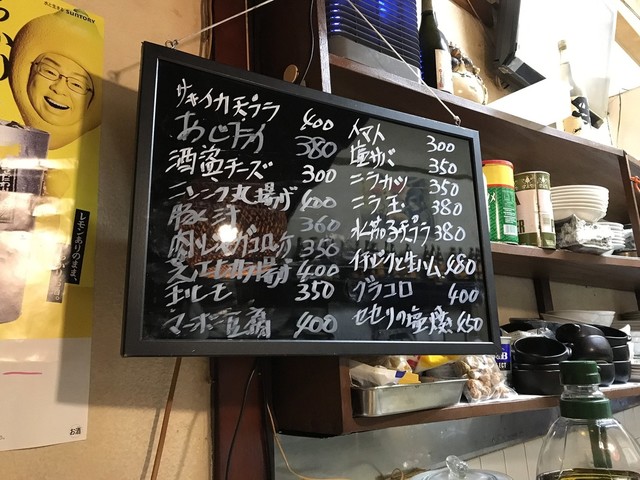 SUNTORY
レモンありのまま、
お酒
サキイカ天プラ 400
あじフライ 380
酒盗チーズ 300
ニンニク丸揚げ 400
豚汁 360
肉じゃがコロッケ 350
芝エビカラ揚げ 400
玉ヒモ 350
マーボー豆腐 400
トマト 300
塩サバ 350
ニラカツ 350
ニラ玉 380
天プラ 380
イチジクと生ハム 480
グラコロ 400
セセリの塩焼 450